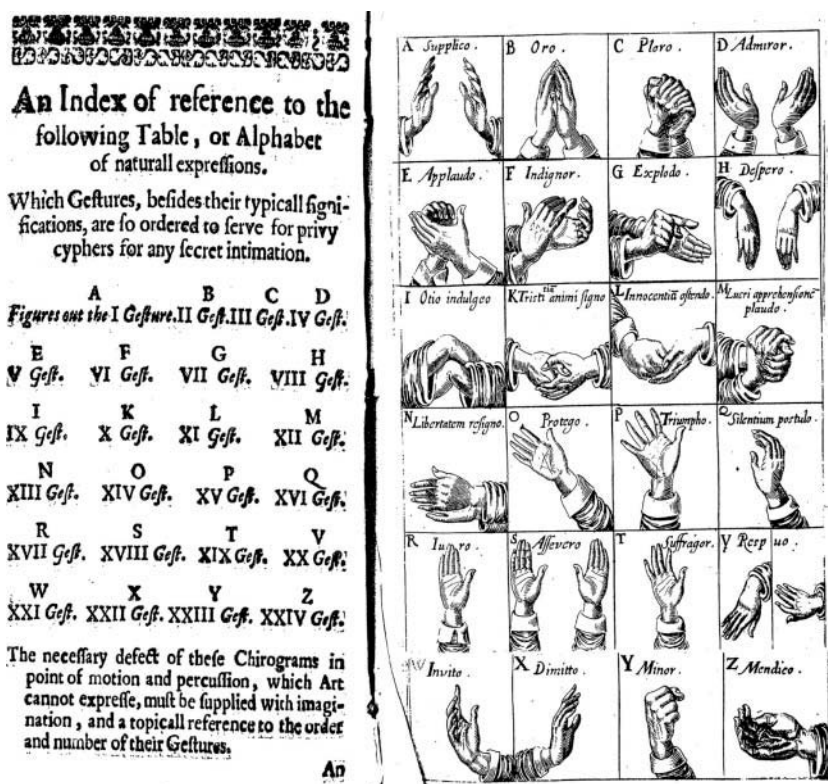 An Index of reference to the
following Table, or Alphabet
of naturall expreſſions.
Which Geſtures, beſides their typicall ſigni-
fications, are ſo ordered to ſerve for privy
cyphers for any ſecret intimation.
A B C D
Figures out the I Geſture. II Geſt. III Geſt. IV Geſt.
E F G H
V Geſt. VI Geſt. VII Geſt. VIII Geſt.
I K L M
IX Geſt. X Geſt. XI Geſt. XII Geſt.
N O P Q
XIII Geſt. XIV Geſt. XV Geſt. XVI Geſt.
R S T V
XVII Geſt. XVIII Geſt. XIX Geſt. XX Geſt.
W X Y Z
XXI Geſt. XXII Geſt. XXIII Geſt. XXIV Geſt.
The neceſſary defect of theſe Chirograms in
point of motion and percuſſion, which Art
cannot expreſſe, muſt be ſupplied with imagi-
nation, and a topicall reference to the order
and number of their Geſtures.
An
A Supplico.
B Oro.
C Ploro.
D Admiror.
E Applaudo.
F Indignor.
G Explodo.
H Despero.
I Otio indulgeo
K Tristitiā animi signo
L Innocentiā ostendo
M Lucri apprehensionē
plaudo.
N Libertatem resigno.
O Protego.
P Triumpho.
Q Silentium postulo.
R Iuro.
S Assevero
T Suffragor.
V Respuo.
W Invito.
X Dimitto
Y Minor.
Z Mendico.